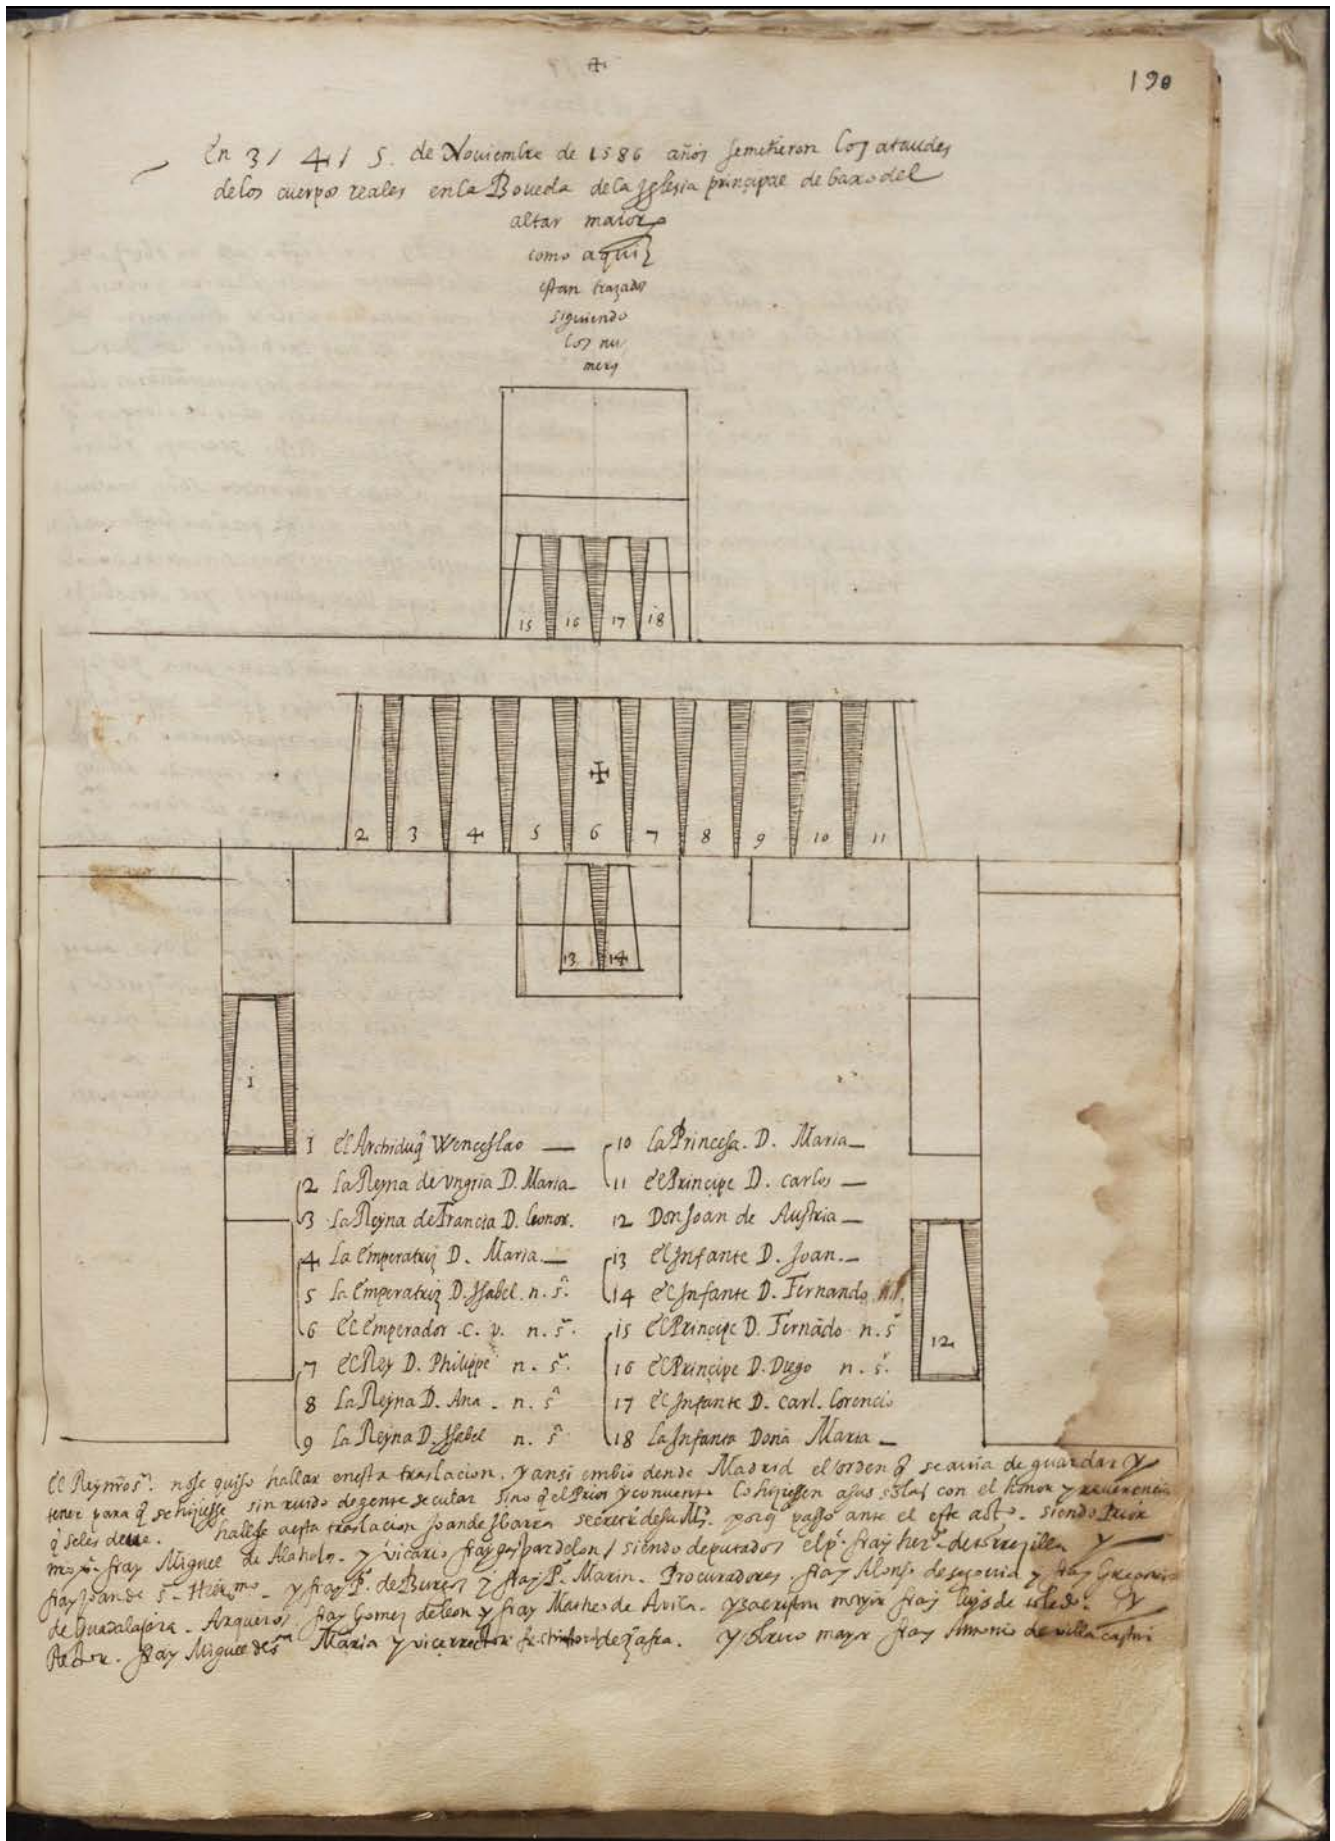 190
En 3 / 4 / 5. de Nouiembre de 1586 años semetieron los ataudes
delos cuerpos reales enla Boueda dela yglesia principae debaxodel
altar maior
como aqui
estan trazados
siguiendo
los nu
meros
15 16 17 18
2 3 4 5 6 7 8 9 10 11
13 14
1
12
1 el Archiduq̃ Wenceslao
2 la Reyna de vngria D. Maria
3 la Reyna de Francia D. leonor.
4 la emperatriz D. Maria
5 la emperatriz D. Isabel. n. sª.
6 el emperador .c. v. n. sʳ.
7 el Rey D. Philippe n. sʳ.
8 La Reyna D. Ana . n. sª
9 la Reyna D. Isabel n. sª
10 la Princesa. D. Maria
11 el Principe D. carlos
12 Don Joan de Austria
13 el Infante D. Joan.
14 el Infante D. Fernando
15 el Principe D. Fernãdo n. sʳ
16 el Principe D. Diego n. sʳ.
17 el Infante D. carl. lorencio
18 la Infanta Doña Maria
el Rey nrõ sʳ. nose quiso hallar enesta traslacion. y ansi embio dende Madrid el orden q̃ se auia de guardar y
tener para q̃ se hiziesse sin ruido de gente secular sino q̃ el Prior y conuento lo hiziessen asus solas con el honor y reuerencia
q̃ seles deue. hallose aesta traslacion Joan de Ybarra secretº de su Mᵈ. porq̃ passo ante el este acto. siendo Prior
fray Miguel de Alaholos. y vicario fray gaspar deleon / siendo deputados el pᵉ. fray herº de torrezilla y
fray Joan de S. Hierᵐᵒ. y fray Pº. de Burgos y fray Pº. Marin. Procuradores. fray Alonso desegouia y fray Gregorio
de Guadalajara. Arqueros fray Gomez de leon y fray Matheo de Auila. y sacristan mayor fray de toledo. y
Rector. fray Miguel de sᵗᵃ Maria y vicerrector de zafra. y obrero mayor fray Antonio de villacastin